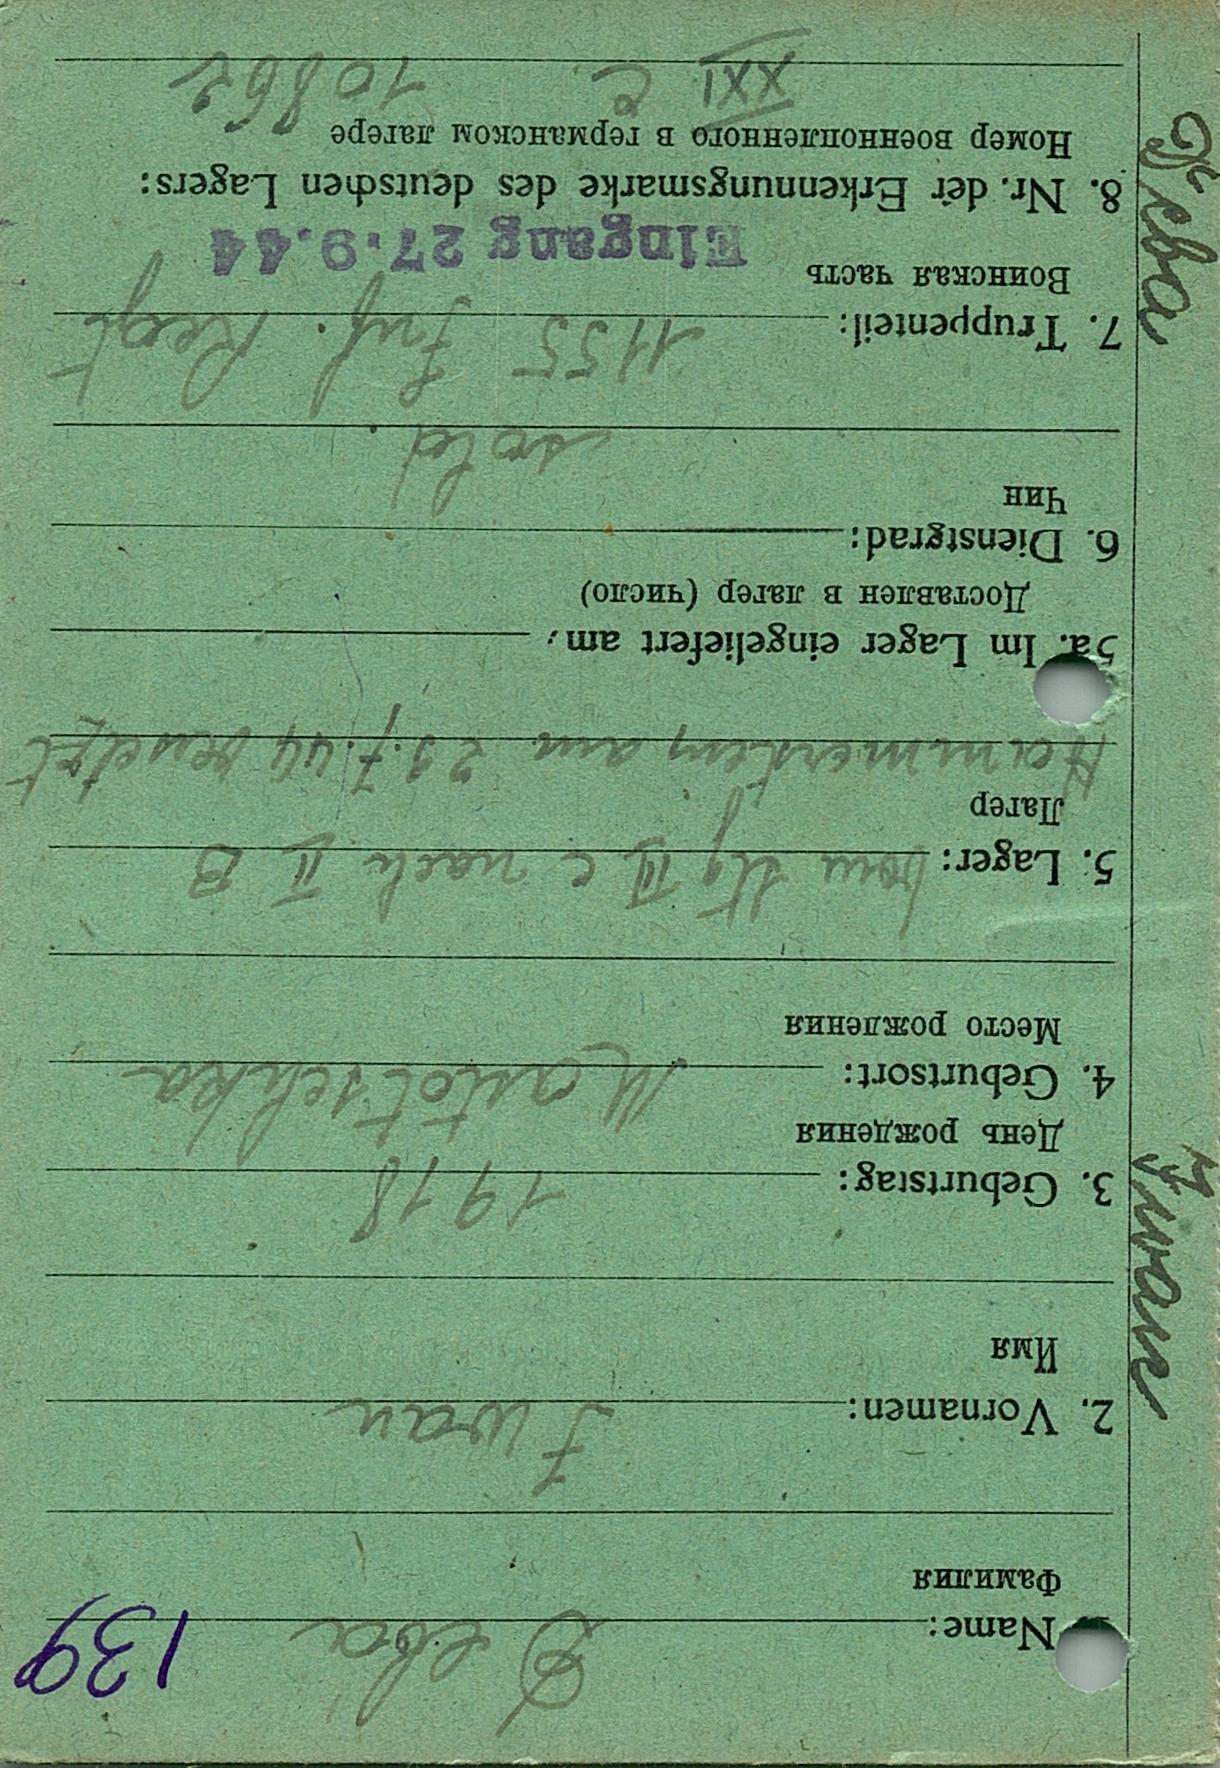 139
Name: Deba
Фамилия
2. Vornamen: Iwan
Имя
3. Geburtstag: 1918
День рождения
4. Geburtsort:
Место рождения
5. Lager: vom III C nach II B
Лагер
Hammerstein, am 29.7.44 versetzt
5a. Im Lager eingeliefert am,
Доставлен в лагер (число)
6. Dienstgrad:
Чин
sold.
7. Truppenteil: 1155 Inf. Regt
Воинская часть
Eingang 27.9.44
8. Nr. der Erkennungsmarke des deutschen Lagers:
Номер военнопленного в германском лагере
XXI C 10862
Iwan
Deba